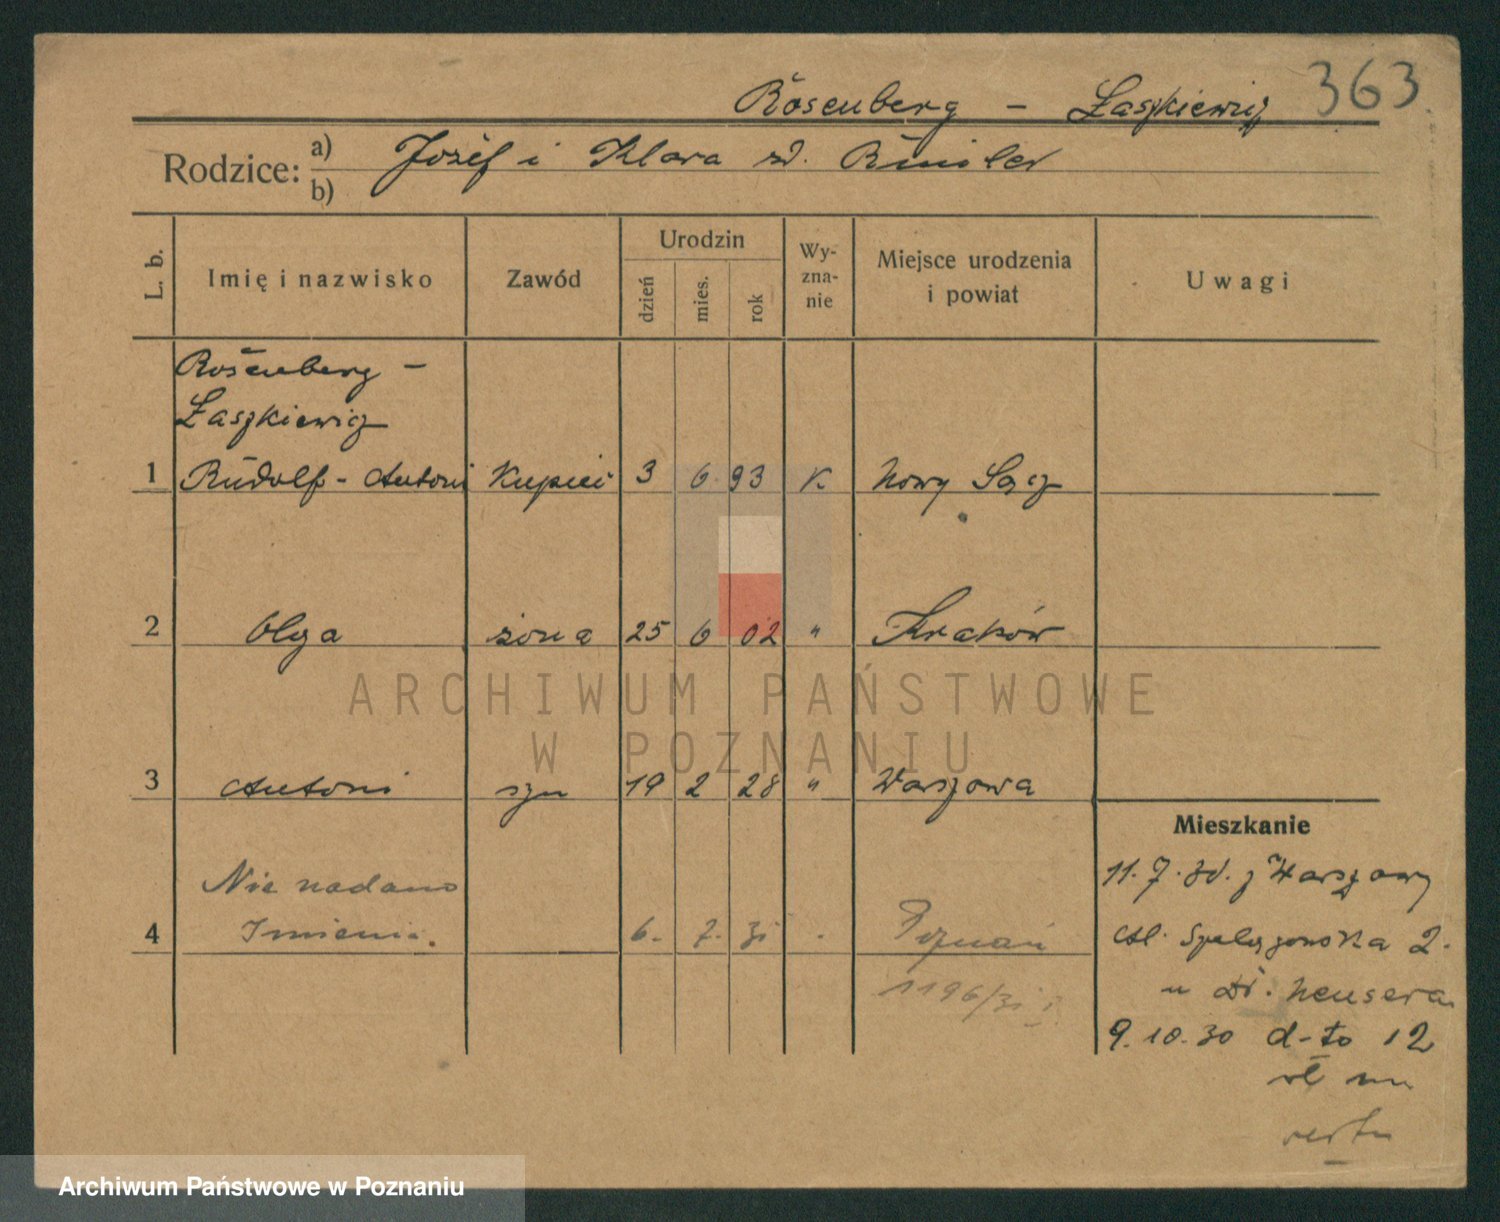 363
Rosenberg - Łaszkiewicz
Rodzice: a) Józef i Klara
b)
L. b. Imię i nazwisko Zawód Urodzin dzień mies. rok Wyznanie Miejsce urodzenia i powiat Uwagi
Rosenberg -
Łaszkiewicz
1 Rudolf - Antoni Kupiec 3 6 93 K Nowy Sącz
2 Olga żona 25 6 02 " Kraków
3 Antoni syn 19 2 28 " Warszawa
Nie nadano
4 Imienia. 6. 7. 31 Poznań
1196/31
Mieszkanie
11. 7. 30. z Warszawy
Al. Szelągowska 2.
u Neusera
9. 10. 30 d-to 12
ARCHIWUM PAŃSTWOWE
W POZNANIU
Archiwum Państwowe w Poznaniu